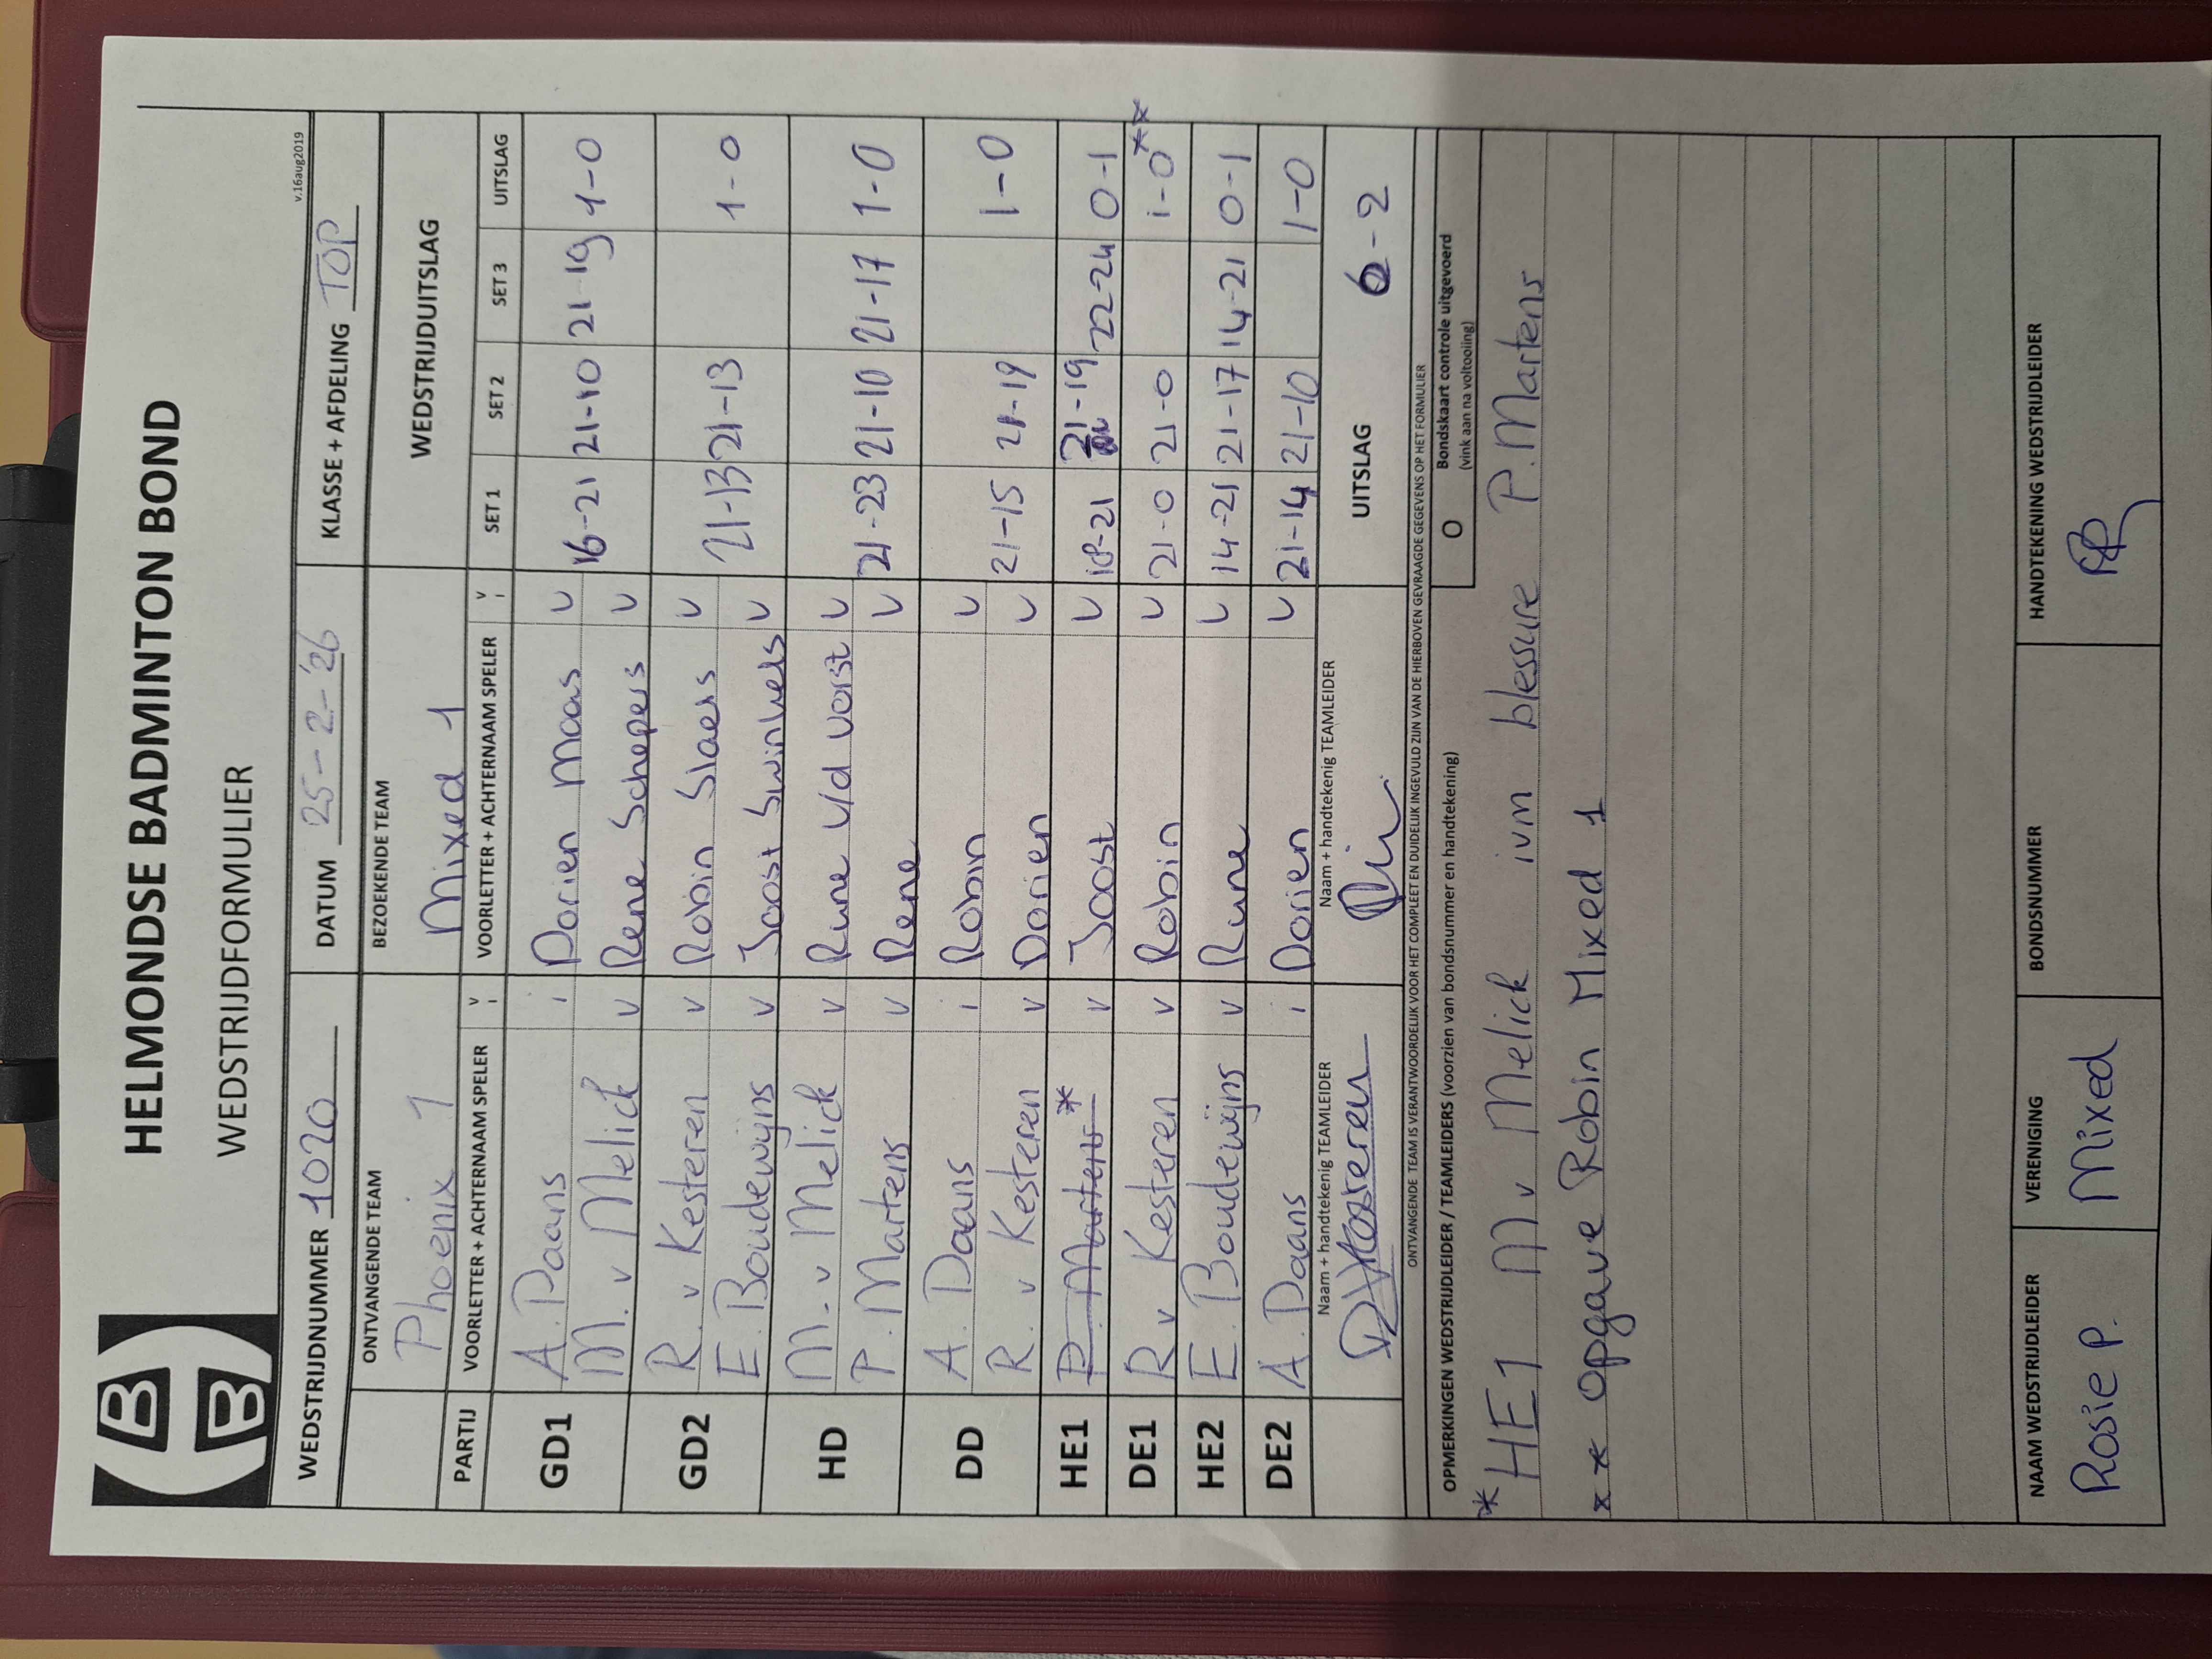 HELMONDSE BADMINTON BOND
WEDSTRIJDFORMULIER
v.16aug2019
WEDSTRIJDNUMMER 1020 DATUM 25-2-'26 KLASSE + AFDELING TOP
ONTVANGENDE TEAM BEZOEKENDE TEAM WEDSTRIJDUITSLAG
Phoenix 1 Mixed 1
PARTIJ VOORLETTER + ACHTERNAAM SPELER V i VOORLETTER + ACHTERNAAM SPELER V i SET 1 SET 2 SET 3 UITSLAG
GD1 A. Daans i Dorien Maas v 16-21 21-10 21-19 1-0
M. v Melick v Rene Schepers v
GD2 R. v Kesteren v Robin Slaets v 21-13 21-13 1-0
E. Boudewijns v Joost Swinkels v
HD M. v Melick v Rune v/d Vorst v 21-23 21-10 21-17 1-0
P. Martens v Rene v
DD A. Daans i Robin v 21-15 21-19 1-0
R. v Kesteren v Dorien v
HE1 P. Martens * v Joost v 18-21 21-19 22-24 0-1
DE1 R v Kesteren v Robin v 21-0 21-0 1-0 **
HE2 E. Boudewijns v Rune v 14-21 21-17 14-21 0-1
DE2 A. Daans i Dorien v 21-14 21-10 1-0
Naam + handtekenig TEAMLEIDER Naam + handtekenig TEAMLEIDER UITSLAG 6-2
ONTVANGENDE TEAM IS VERANTWOORDELIJK VOOR HET COMPLEET EN DUIDELIJK INGEVULD ZIJN VAN DE HIERBOVEN GEVRAAGDE GEGEVENS OP HET FORMULIER
OPMERKINGEN WEDSTRIJDLEIDER / TEAMLEIDERS (voorzien van bondsnummer en handtekening) O Bondskaart controle uitgevoerd
(vink aan na voltooiing)
* HE1 M v Melick ivm blessure P. Martens
** Opgave Robin Mixed 1
NAAM WEDSTRIJDLEIDER VERENIGING BONDSNUMMER HANDTEKENING WEDSTRIJDLEIDER
Rosie P. Mixed